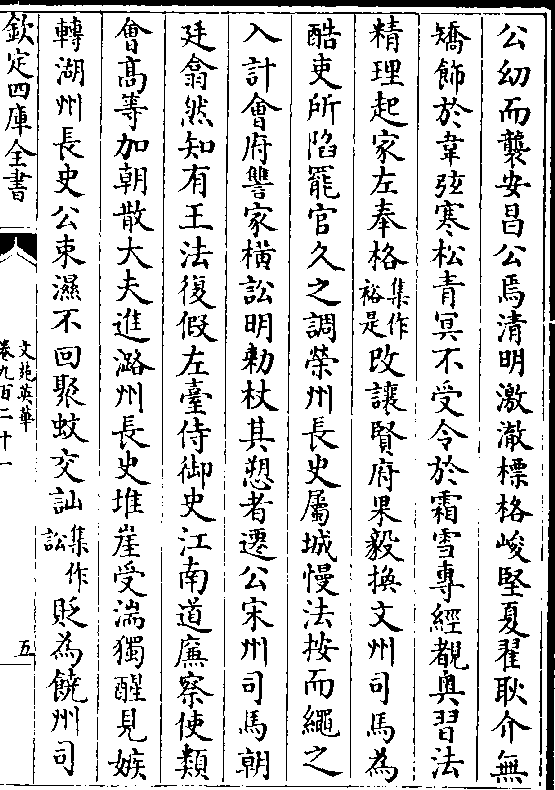 公幼而襲安昌公焉清明激澈標格峻堅夏翟耿介無
矯飾於韋弦寒松青冥不受令於霜雪專經覩奥習法
精理起家左奉格集作裕是改讓賢府果毅換文州司馬為
酷吏所陷罷官久之調榮州長史屬城慢法按而繩之
入計會府讐家橫訟明勅杖其愬者遷公宋州司馬朝
廷翕然知有王法復假左臺侍御史江南道廉察使類
㑹髙等加朝散大夫進潞州長史堆崖受湍獨醒見嫉
轉湖州長史公束濕不回聚蚊交訕集作訟貶為饒州司
欽定四庫全書
文苑英華
卷九百二十一
五